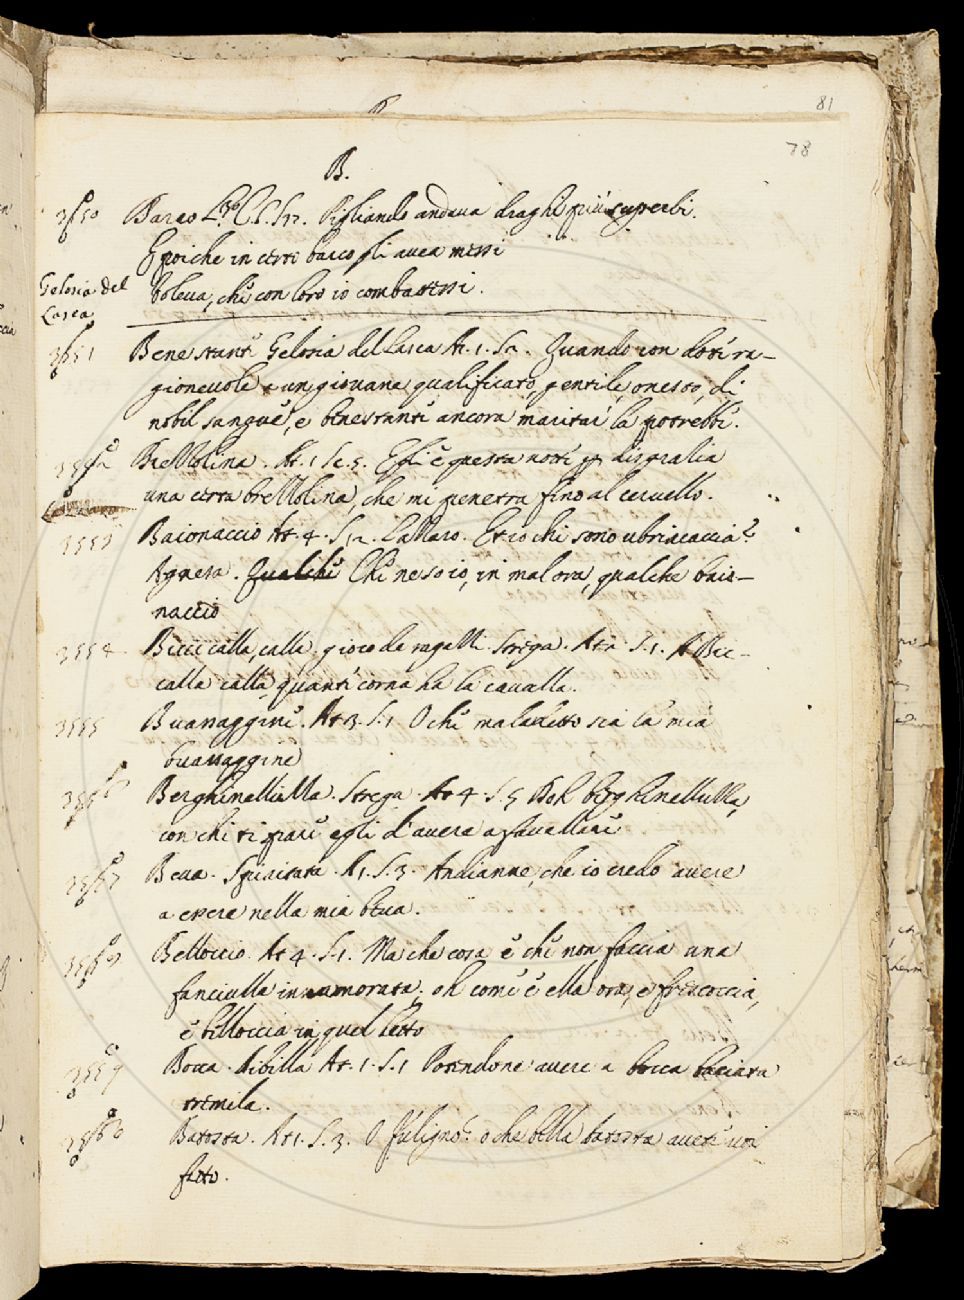 81
78
B.
3550
Barco L.ro C. S. 17. Pigliando andava draghi più superbi.
E poiche in certo barco gli avea messi
Gelosia del
Lasca
Voleva, che con loro io combattessi.
3551
Benestante Gelosia del Lasca At. 1. S. 2. Quando con dote ra-
gionevole a un giovane qualificato, gentile, onesto, di
nobil sangue, e benestante ancora maritar la potrebbe.
3552
Brezzolina. At. 1 Sc. 5. Egli è questa notte p disgrazia
una certa brezzolina, che mi penetra fino al cervello.
3553
Baionaccio At. 4. S. 12. Lazzaro. Et io chi sono ubriacaccia?
Agnesa. Qualche Che ne so io, in mal ora, qualche baio-
naccio
3554
Biccicalla, calla. gioco da ragazzi. Strega. At 2. S. 1. A Bic-
calla calla quante corna ha la cavalla.
3555
Buassaggine. At 3. S. 1 O che maladetto sia la mia
buassaggine
3556
Berghinelluzza. Strega. At 4. S. 5 Doh berghinelluzza,
con chi ti pare egli d'avere a favellare
3557
Beva. Spiritata. A 1. S. 3. Andianne, che io credo avere
a essere nella mia beva.
3558
Belloccio. At 4. S. 1. Ma che cosa è che non faccia una
fanciulla innamorata. oh come è ella ora, e frescoccia,
e belloccia in quel letto
3559
Bocca. Sibilla At. 1. S. 1 Potendone avere a bocca baciata
tremila.
3560
Batosta. At 1. S. 3. O Fuligno. o che bella batosta avete voi
fatto.